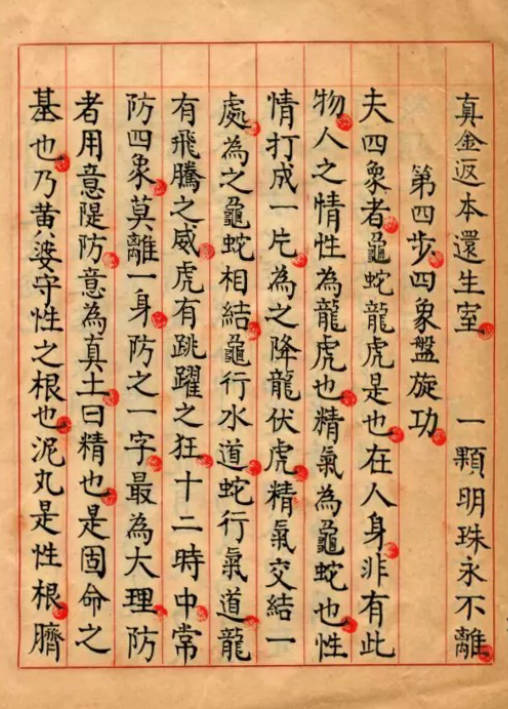 真金返本還生室　一顆明珠永不離
第四步四象盤旋功
夫四象者龜蛇龍虎是也在人身非有此
物人之情性為龍虎也精氣為龜蛇也性
情打成一片為之降龍伏虎精氣交結一
處為之龜蛇相結龜行水道蛇行氣道龍
有飛騰之威虎有跳躍之狂十二時中常
防四象莫離一身防之一字最為大理防
者用意隄防意為真土曰精也是固命之
基也乃黃婆守性之根也泥丸是性根臍